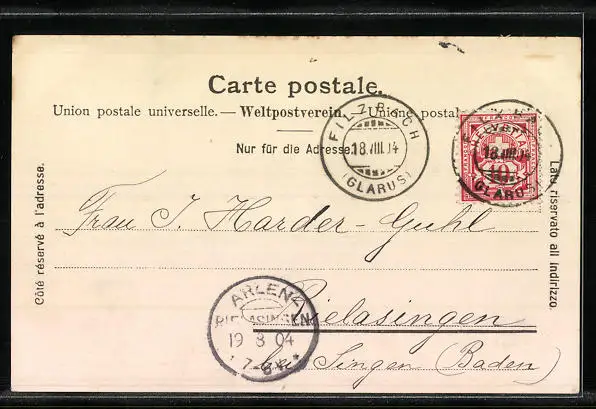 Carte postale.
Union postale universelle. — Weltpostverein. Unione postal
Nur für die Adresse.
FILZBACH
18.VIII.04
(GLARUS)
HELVETIA
18.VIII.04
10
(GLARUS)
Côté réservé à l'adresse.
Lato riservato all indirizzo.
Frau J. Harder-Guhl
Rielasingen
bei Singen (Baden)
ARLEN-
RIELASINGEN
19 8 04
7-8